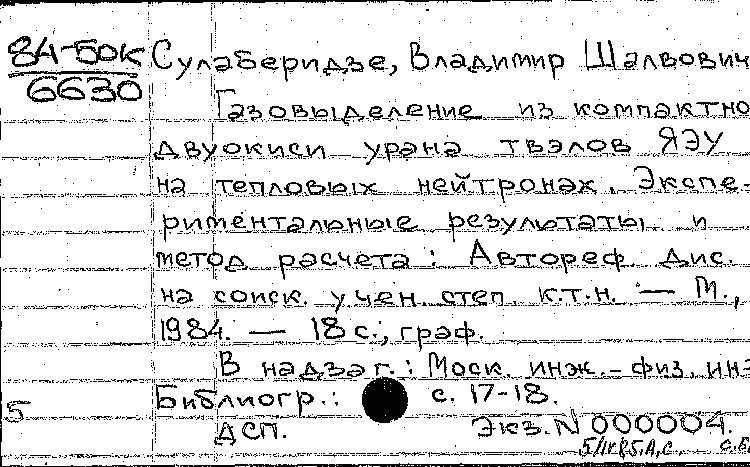 84-50к
6630
Сулаберидзе, Владимир Шалвович
Газовыделение из компактно
двуокиси урана твэлов ЯЭУ
на тепловых нейтронах. Экспе-
риментальные результаты и
метод расчета: Автореф. дис.
на соиск. учен. степ. к.т.н. — М.,
1984. — 18 с., граф.
В надзаг.: Моск. инж.-физ. ин-
Библиогр.: с. 17-18.
5
ДСП. Экз. N 000004.